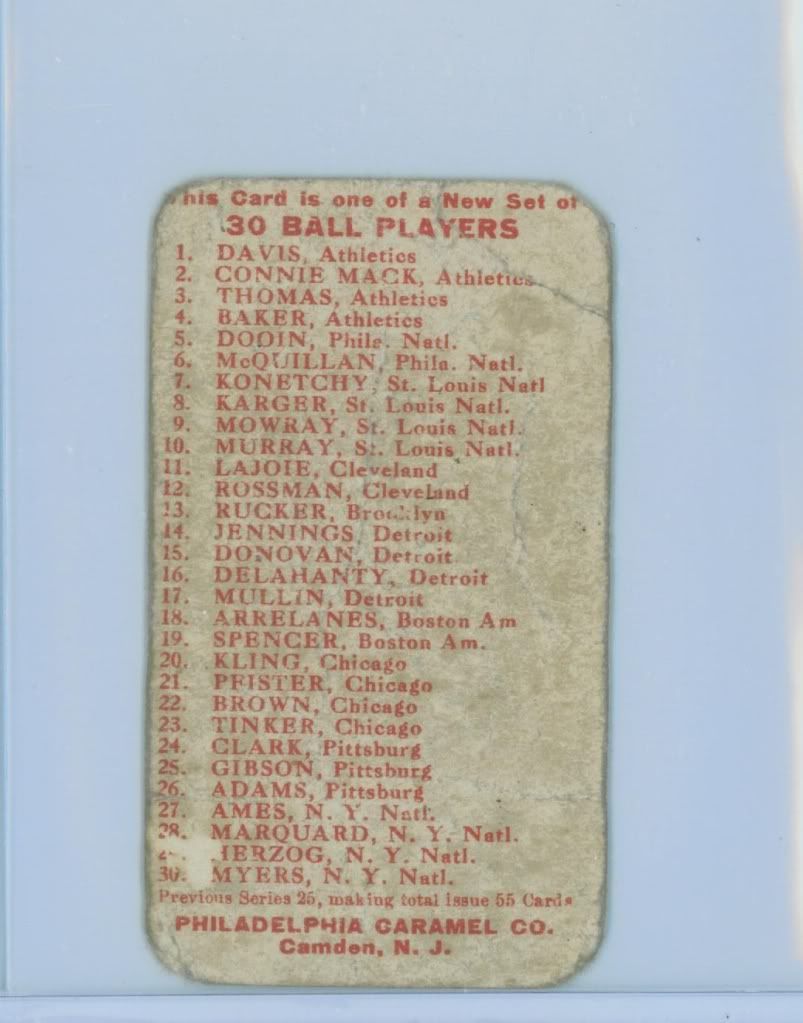 his Card is one of a New Set of
30 BALL PLAYERS
1. DAVIS, Athletics
2. CONNIE MACK, Athletics
3. THOMAS, Athletics
4. BAKER, Athletics
5. DOOIN, Phila. Natl.
6. McQUILLAN, Phila. Natl.
7. KONETCHY, St. Louis Natl
8. KARGER, St. Louis Natl.
9. MOWRAY, St. Louis Natl.
10. MURRAY, St. Louis Natl.
11. LAJOIE, Cleveland
12. ROSSMAN, Cleveland
13. RUCKER, Brooklyn
14. JENNINGS, Detroit
15. DONOVAN, Detroit
16. DELAHANTY, Detroit
17. MULLIN, Detroit
18. ARRELANES, Boston Am
19. SPENCER, Boston Am.
20. KLING, Chicago
21. PFISTER, Chicago
22. BROWN, Chicago
23. TINKER, Chicago
24. CLARK, Pittsburg
25. GIBSON, Pittsburg
26. ADAMS, Pittsburg
27. AMES, N. Y. Natl.
28. MARQUARD, N. Y. Natl.
HERZOG, N. Y. Natl.
30. MYERS, N. Y. Natl.
Previous Series 25, making total issue 55 Cards
PHILADELPHIA CARAMEL CO.
Camden, N. J.